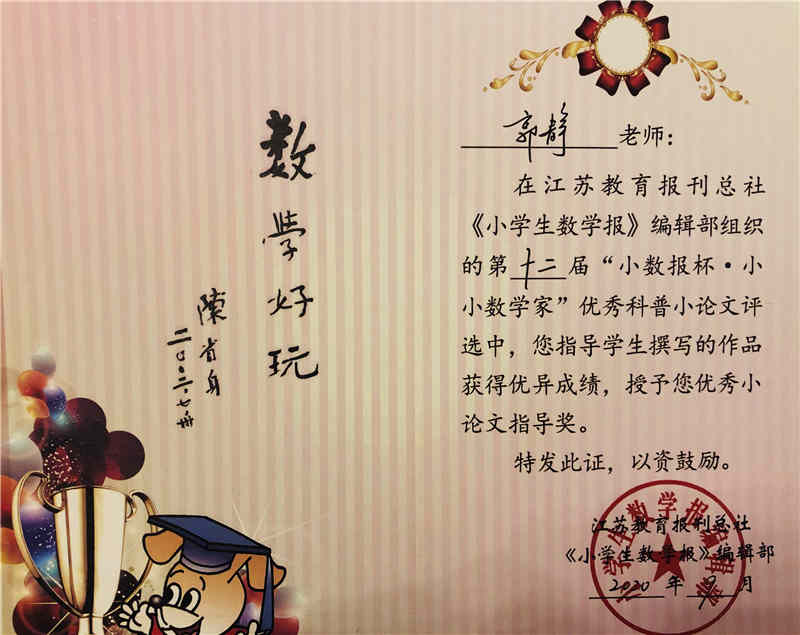 数学好玩
陈省身
郭静老师：
在江苏教育报刊总社
《小学生数学报》编辑部组织
的第十二届“小数报杯·小
小数学家”优秀科普小论文评
选中，您指导学生撰写的作品
获得优异成绩，授予您优秀小
论文指导奖。
特发此证，以资鼓励。
江苏教育报刊总社
《小学生数学报》编辑部
2020年9月